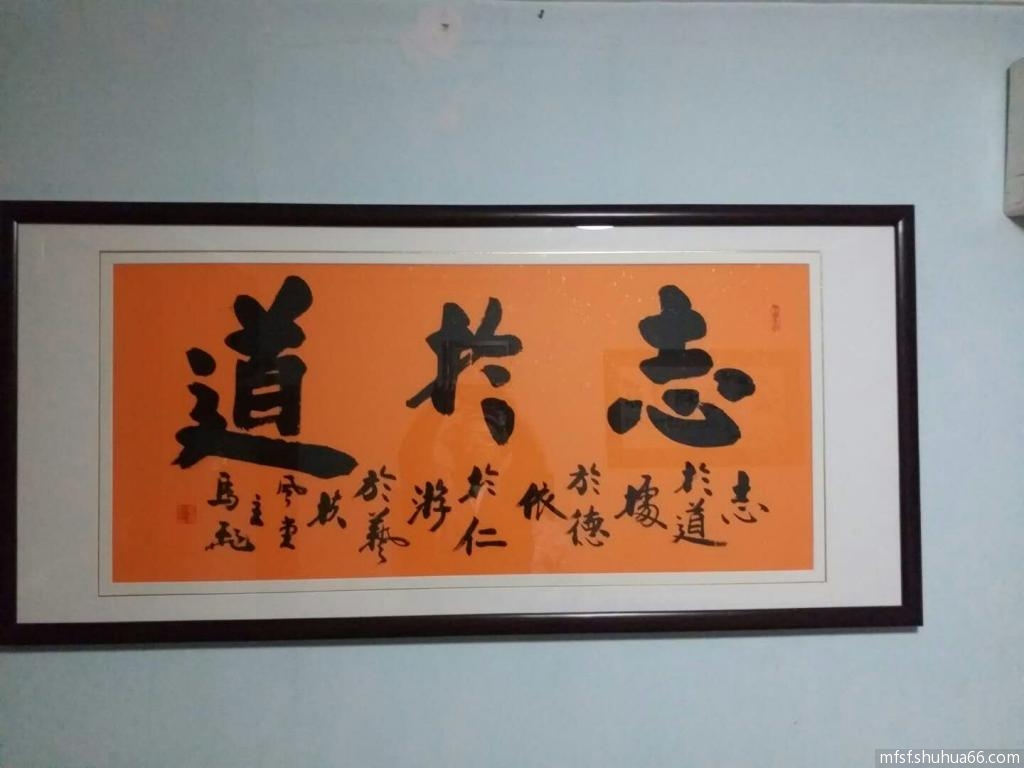 志於道
志於道據於德依於仁游於藝
扶風堂主馬飛
mfsf.shuhua66.com